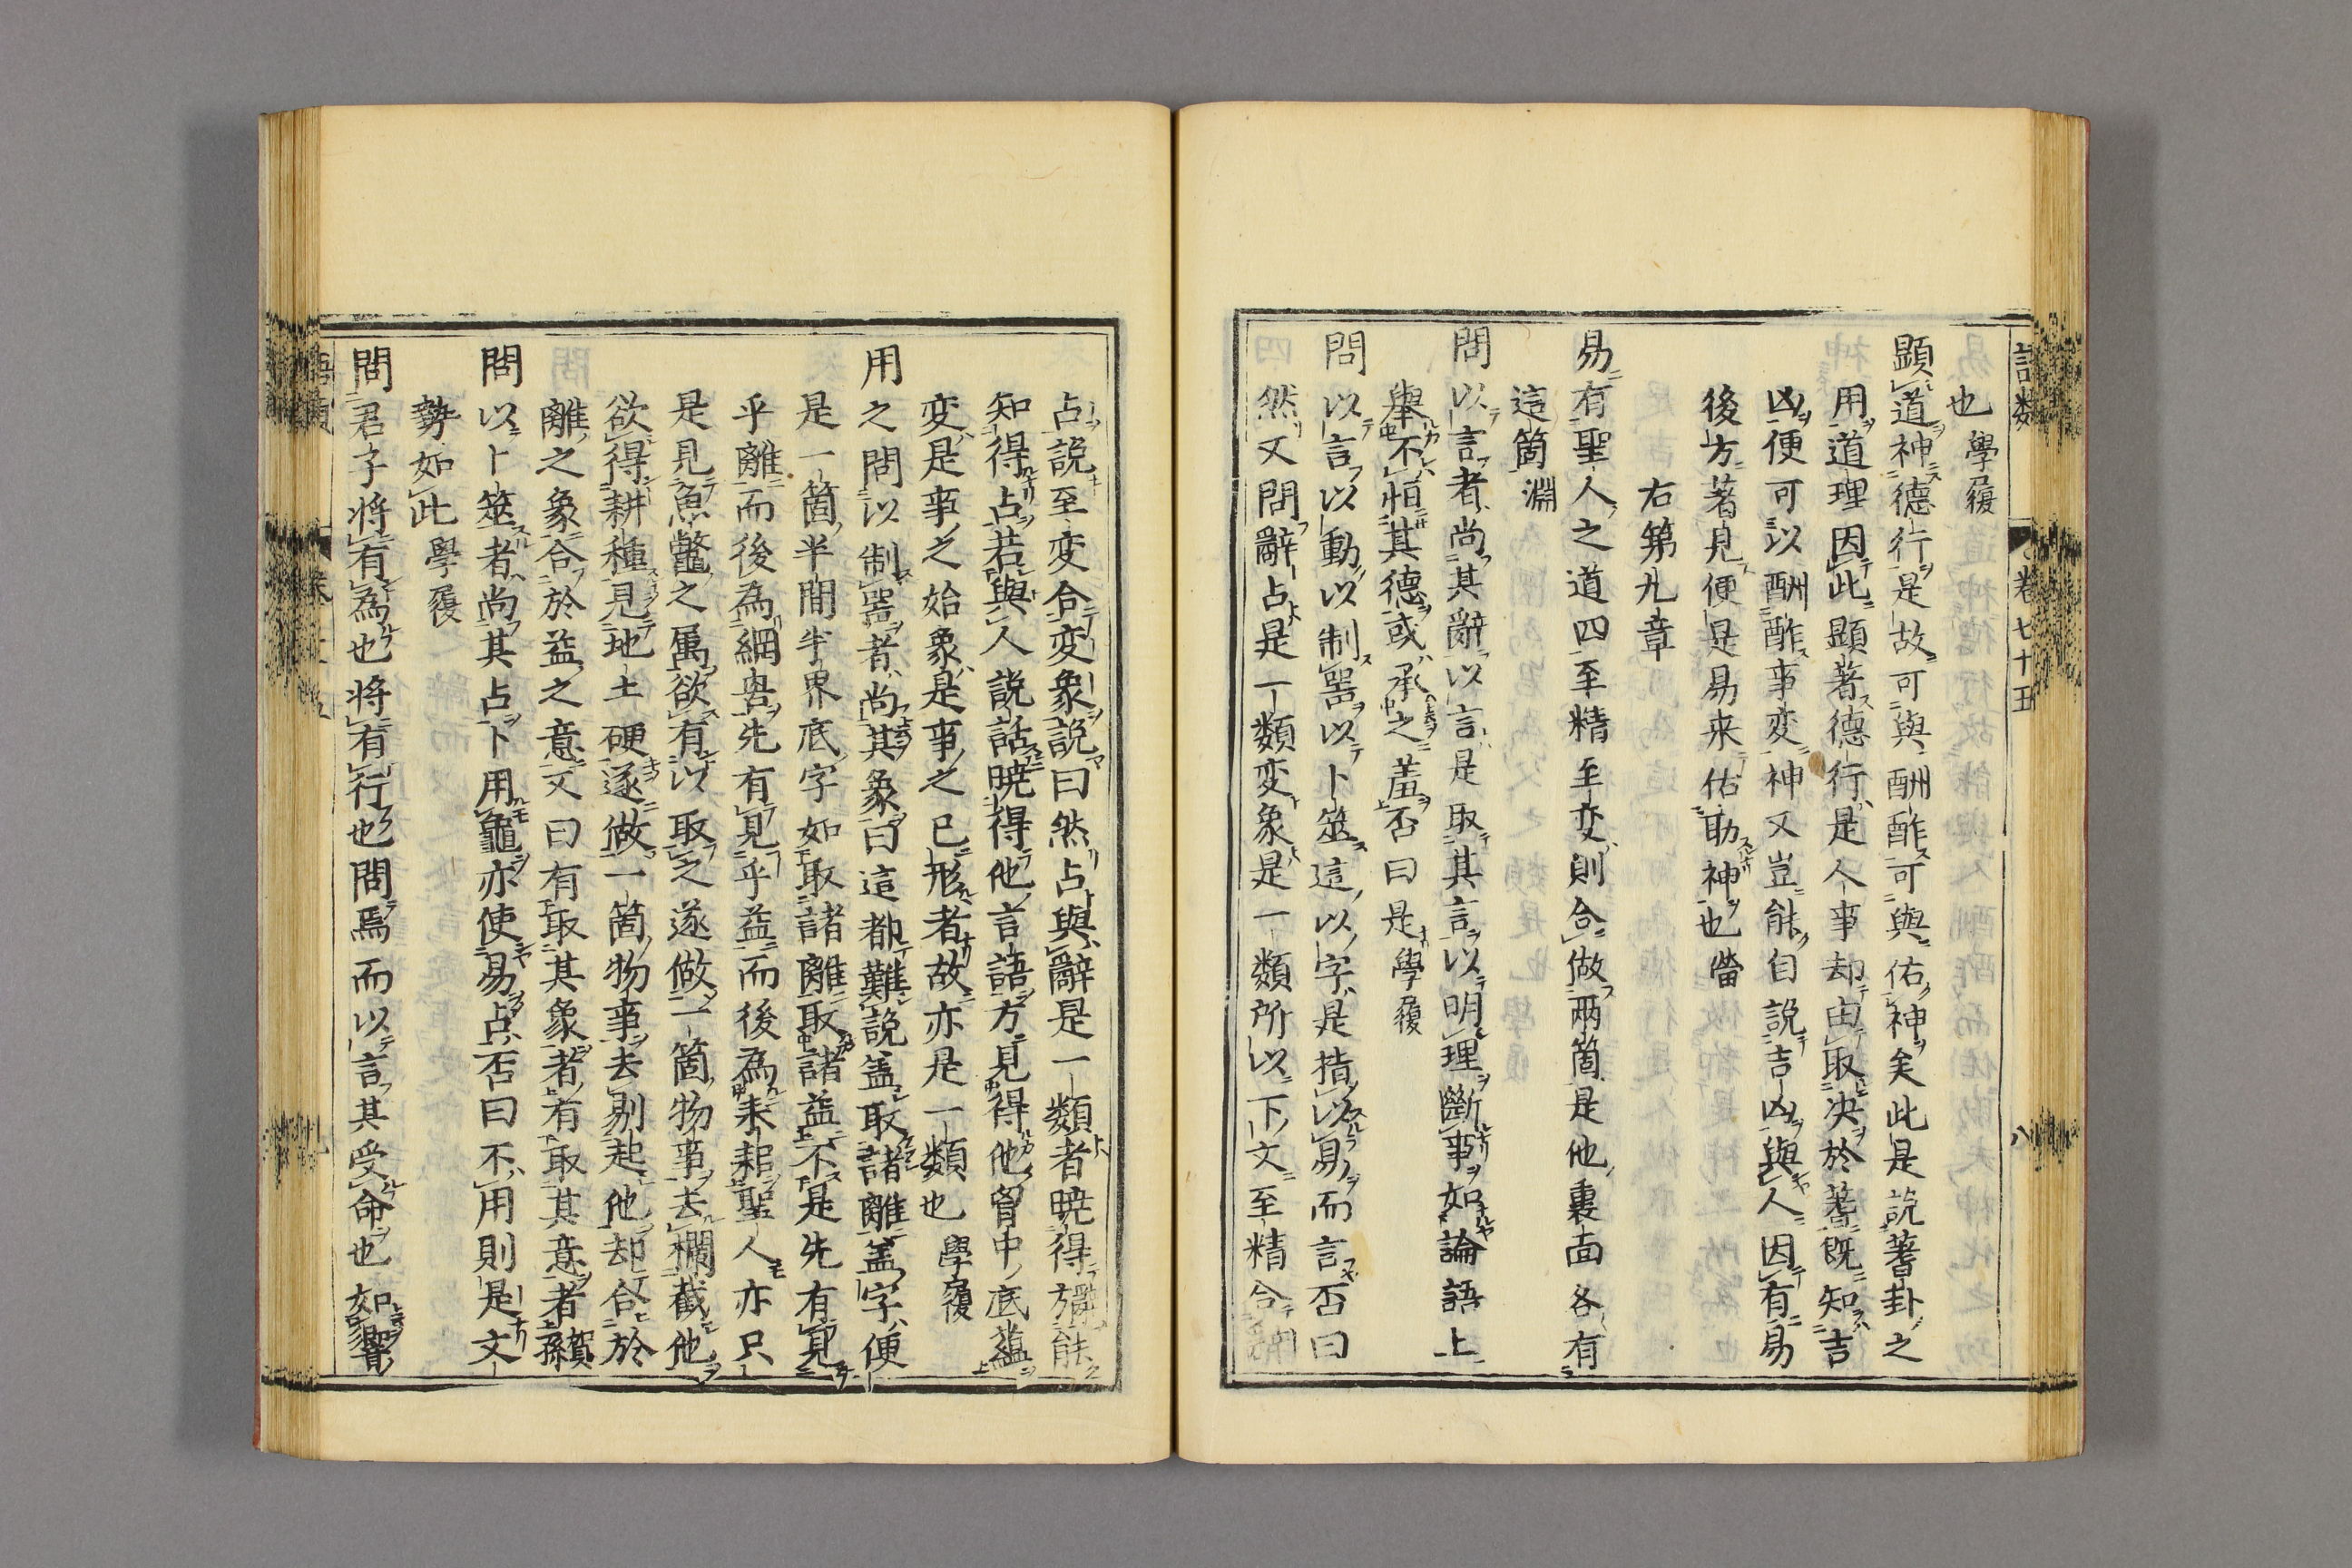 語類
卷七十五
八
也學履
顯道神德行是故可與酬酢可與佑神矣此是說蓍卦之
用道理因此顯著德行是人事却由取决於蓍既知吉
凶便可以酬酢事変神又豈能自說吉凶與人因有易
後方著見便是易来佑助神也㽦
右第九章
易有聖人之道四至精至变則合做兩箇是他裏面各有
這箇淵
問以言者尚其辭以言是取其言以明理斷事如論語上
舉不恒其德或承之羞否曰是學履
問以言以動以制噐以卜筮這以字是指以易而言否曰
然又問辭占是一類変象是一類所以下文至精合辭
占說至变合変象說曰然占與辭是一類者曉得辭能
知得占若與人説話曉得他言語方見得他胷中底蘊
変是事之始象是事之已形者故亦是一類也學履
用之問以制噐者尚其象曰這都難說盖取諸離盖字便
是一箇半間半界底字如取諸離取諸益不是先有見
乎離而後為網罟先有見乎益而後為耒耜聖人亦只
是見魚鼈之属欲有以取之遂做一箇物事去欄截他
欲得耕種見地土硬遂做一箇物事去剔起他却合於
離之象合於益之意又曰有取其象者有取其意者賀孫
問以卜筮者尚其占卜用龜亦使易占否曰不用則是文
勢如此學履
問君子将有為也将有行也問焉而以言其受命也如響